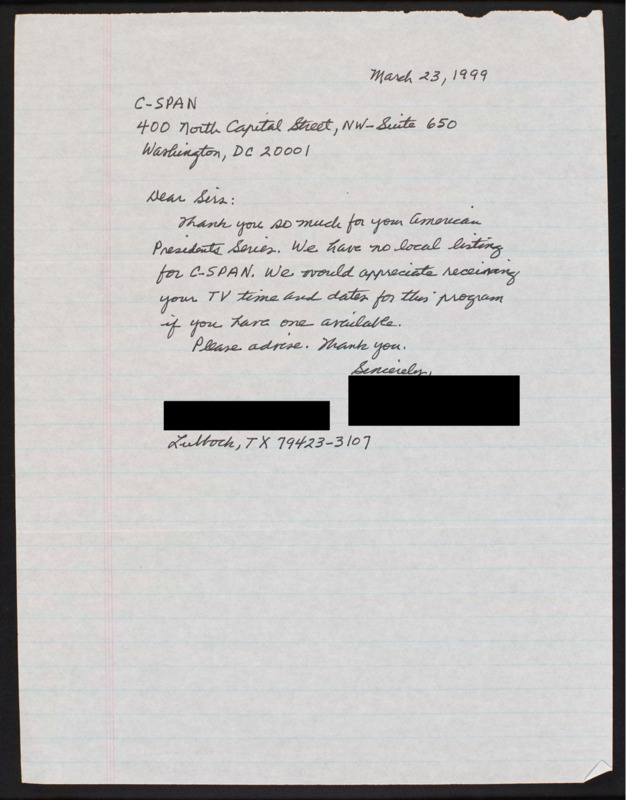 March 23, 1999
C-SPAN
400 North Capital Street, NW-Suite 650
Washington, DC 20001
Dear Sirs:
Thank you so much for your American
Presidents Series. We have no local listing
for C-SPAN. We would appreciate receiving
your TV time and dates for this program
if you have one available.
Please advise. Thank you.
Sincerely,
Lubbock, TX 79423-3107